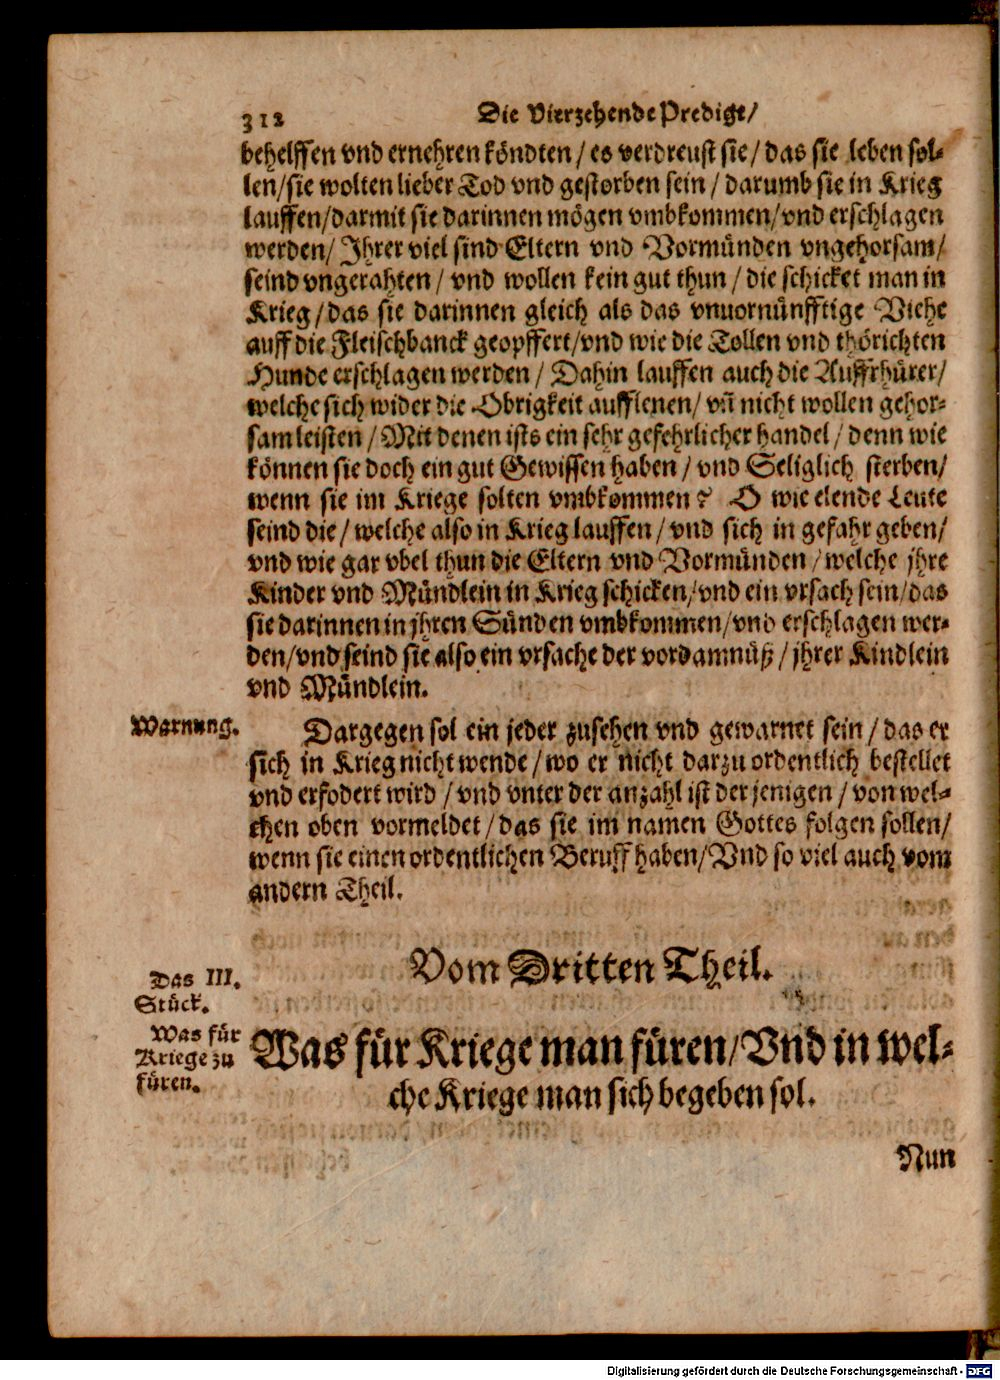 312 Die Vierzehende Predigt/
behelffen vnd ernehren köndten/ es verdreust sie/ das sie leben sol-
len/sie wolten lieber Tod vnd gestorben sein/ darumb sie in Krieg
lauffen/darmit sie darinnen mögen vmbkommen/vnd erschlagen
werden/ Ihrer viel sind Eltern vnd Vormünden vngehorsam/
seind vngerahten/ vnd wollen kein gut thun/ die schicket man in
Krieg/das sie darinnen gleich als das vnuornünfftige Viehe
auff die Fleischbanck geopffert/vnd wie die Tollen vnd thörichten
Hunde erschlagen werden/ Dahin lauffen auch die Auffrhürer/
welche sich wider die Obrigkeit aufflenen/ vñ nicht wollen gehor-
sam leisten/ Mit denen ists ein sehr gefehrlicher handel/ denn wie
können sie doch ein gut Gewissen haben/ vnd Seliglich sterben/
wenn sie im Kriege solten vmbkommen? O wie elende Leute
seind die/ welche also in Krieg lauffen/ vnd sich in gefahr geben/
vnd wie gar vbel thun die Eltern vnd Vormünden/ welche jhre
Kinder vnd Mündlein in Krieg schicken/vnd ein vrsach sein/das
sie darinnen in jhren Sünden vmbkommen/vnd erschlagen wer-
den/vnd seind sie also ein vrsache der vordamnüß/ jhrer Kindlein
vnd Mündlein.
Warnung.
Dargegen sol ein jeder zusehen vnd gewarnet sein/ das er
sich in Krieg nicht wende/ wo er nicht darzu ordentlich bestellet
vnd erfodert wird/ vnd vnter der anzahl ist der jenigen/ von wel-
chen oben vormeldet/ das sie im namen Gottes folgen sollen/
wenn sie einen ordentlichen Beruff haben/Vnd so viel auch vom
andern Theil.
Vom Dritten Theil.
Das III.
Stück.
Was für
Kriege zu
füren.
Was für Kriege man füren/Vnd in wel-
che Kriege man sich begeben sol.
Nun
Digitalisierung gefördert durch die Deutsche Forschungsgemeinschaft - DFG